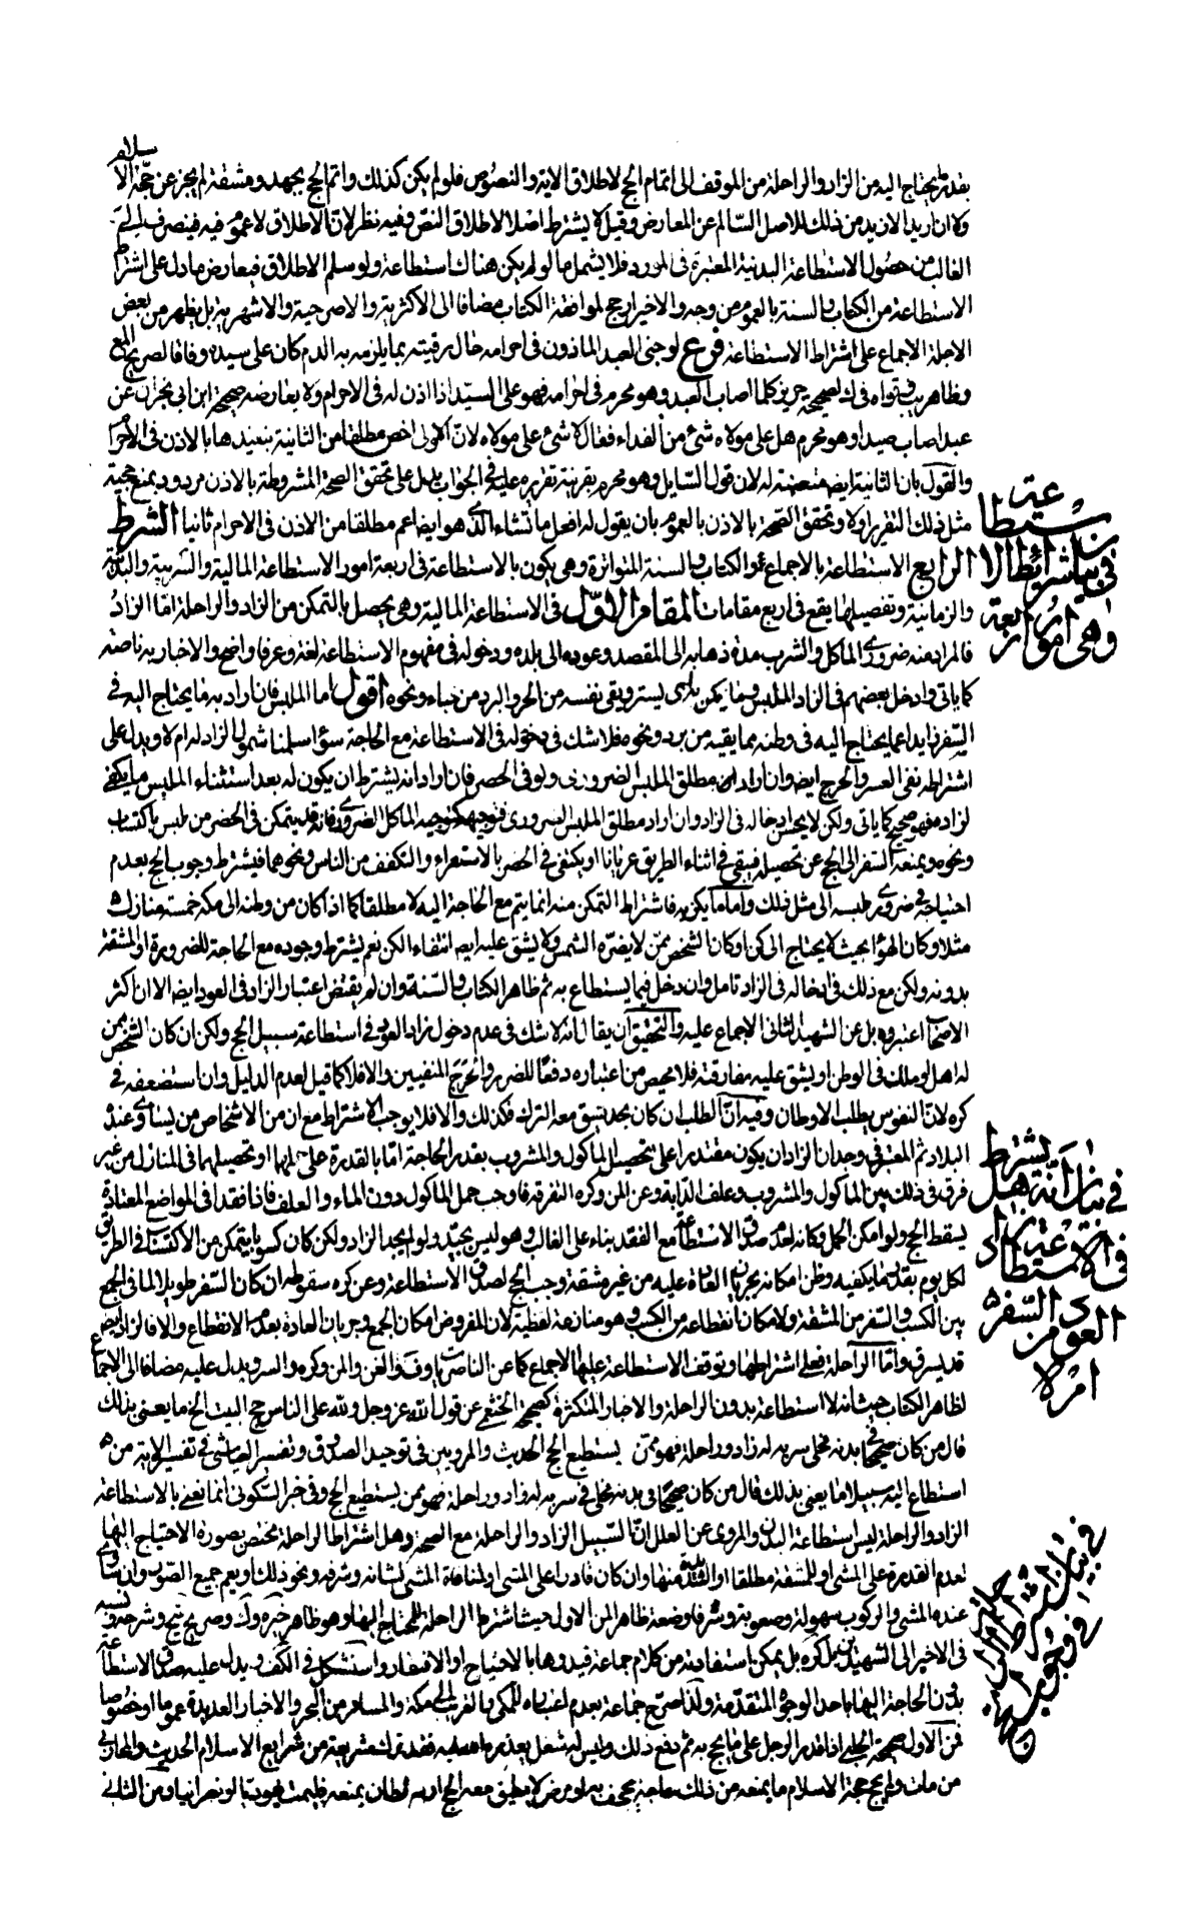 بقدر ما يحتاج اليه من الزاد والراحلة من الموقف الى اتمام الحج لاطلاق الاية والنصوص فلو لم يكن كذلك واتم الحج بجهد ومشقة لم يجز عن حجة الاسلام
ولا ان اريد الازيد من ذلك للاصل السالم عن المعارض وقيل لا يشترط اصلا لاطلاق النص وفيه نظر لان الاطلاق لا عموم فيه فينصرف الى
الغالب من حصول الاستطاعة البدنية المعتبرة فى المورد فلا يشمل ما لو لم يكن هناك استطاعة ولو سلم الاطلاق فيعارض ما دل على اشتراط
الاستطاعة من الكتاب والسنة بالعموم من وجه والاخير ارجح لموافقة الكتاب مضافا الى الاكثرية والاصرحية والاشهرية بل يظهر من بعض
الاجلة الاجماع على اشتراط الاستطاعة فرع لو جنى العبد الماذون فى احرامه حال رقيته بما يلزمه به الدم كان على سيده وفاقا لصريح
وظاهر كلما اصاب العبد وهو محرم فى احرامه فهو على السيد اذا اذن له فى الاحرام ولا يعارضه صحيحة ابن ابى نجران عن
عبد اصاب صيدا وهو محرم هل على مولاه شئ من الفداء فقال لا شئ على مولاه لان الاولى اخص مطلقا من الثانية بتقييدها بالاذن فى الاحرام
والقول بان الثانية ايضا متضمنة له لان قول السايل وهو محرم بقرينة تقريره عليه فى الجواب يدل على تحقق الصحة المشروطة بالاذن مردود بمنع حجية
مثل ذلك التقرير اولا وتحقق الصحة بالاذن بالعموم بان يقول له افعل ما تشاء الذى هو ايضا اعم مطلقا من الاذن فى الاحرام ثانيا الشرط
الرابع الاستطاعة بالاجماع والكتاب والسنة المتواترة وهى يكون بالاستطاعة فى اربعة امور الاستطاعة المالية والسربية والبدنية
والزمانية وتفصيلها يقع فى اربع مقامات المقام الاول فى الاستطاعة المالية وهى يحصل بالتمكن من الزاد والراحلة اما الزاد
فالمراد منه ضرورى الماكل والشرب مدة ذهابه الى المقصد وعوده الى بلده ودخوله فى مفهوم الاستطاعة لغة وعرفا واضح والاخبار به ناصة
كما ياتى وادخل بعضهم فى الزاد الملبس وما يمكن يستر ويقى نفسه من الحر والبرد من خباء ونحوه اقول اما الملبس فان اراد به ما يحتاج اليه فى
السفر زايدا عما يحتاج اليه فى وطنه مما يقيه من برد ونحوه فلا شك فى دخوله فى الاستطاعة مع الحاجة سواء سلمنا شمول الزاد له ام لا ويدل على
اشتراطه نفى العسر والحرج ايضا وان اراد مطلق الملبس الضرورى ولو فى الحضر فان اراد انه يشترط ان يكون له بعد استثناء الملبس ما يكفى
لزاده فهو صحيح كما ياتى ولكن لا يحسن ادخاله فى الزاد وان اراد مطلق الملبس الضرورى فتوجيهه كتوجيه الماكل الضرورى فانه قد يتمكن فى الحضر من ملبس باكتساب
ونحوه ويمنعه السفر الى الحج عن تحصيله فيبقى فى اثناء الطريق عريانا او يكتفى فى الحضر بالاستعراء والتكفف من الناس ونحوهما فيشترط وجوب الحج بعدم
احتياجه فى ضرورى ملبسه الى مثل ذلك واما ما يكن به فاشتراط التمكن منه انما يتم مع الحاجة اليه لا مطلقا كما اذا كان من وطنه الى مكة خمسة منازل
مثلا وكان الهواء بحيث لا يحتاج الى كن او كان الشخص ممن لا يضره الشمس ولا يشق عليه ايضا انتفاء الكن نعم يشترط وجوده مع الحاجة للضرورة او المشقة
بدونه ولكن مع ذلك فى ادخاله فى الزاد تامل وان دخل فيما يستطاع به ثم ظاهر الكتاب والسنة وان لم يقتض اعتبار الزاد فى العود ايضا الا ان اكثر
الاصحاب اعتبروه بل عن الشهيد الثانى الاجماع عليه والتحقيق ان يقال انه لا شك فى عدم دخول زاد العود فى استطاعة سبيل الحج ولكن ان كان الشخص ممن
له اهل او ملك فى الوطن او يشق عليه مفارقته فلا محيص من اعتباره دفعا للضرر والحرج المنفيين والا فلا كما قيل لعدم الدليل وان استضعفه فى
كره لان النفوس يطلب الاوطان وفيه ان الطلب ان كان بحد يشق معه الترك فكذلك والا فلا يوجب الاشتراط مع ان من الاشخاص من يساوى عنده
البلاد ثم المعتبر فى وجدان الزاد ان يكون مقتدرا على تحصيل الماكول والمشروب بقدر الحاجة اما بالقدرة على حملها او تحصيلهما فى المنازل من غير
فرق فى ذلك بين الماكول والمشروب وعلف الدابة وعن المن وكره التفرقة فاوجب حمل الماكول دون الماء والعلف فاذا فقدا فى المواضع المعتادة
يسقط الحج ولو امكن الحمل وكانه لعدم صدق الاستطاعة مع الفقد بناء على الغالب وهو ليس بجيد ولو لم يجد الزاد ولكن كان كسوبا يتمكن من الاكتساب فى الطريق
لكل يوم بقدر ما يكفيه وظن امكانه بجريان العادة عليه من غير مشقة وجب الحج لصدق الاستطاعة وعن كره سقوطه ان كان السفر طويلا لما فى الجمع
بين الكسب والسفر من المشقة ولامكان انقطاعه من الكسب وهو منازعة لفظية لان المفروض امكان الجمع وجريان العادة بعدم الانقطاع والا فالزاد ايضا
قد يسرق واما الراحلة فعلى اشتراطها وتوقف الاستطاعة عليها الاجماع كما عن الناصريات وف والغنى والمن وكره والسر ويدل عليه مضافا الى الاجماع
لظاهر الكتاب حيث انه لا استطاعة بدون الراحلة والاخبار المتكثرة كصحيحة الخثعمى عن قول الله عز وجل ولله على الناس حج البيت الخ ما يعنى بذلك
قال من كان صحيحا فى بدنه مخلى سربه له زاد وراحلة فهو ممن يستطيع الحج الحديث والمرويين فى توحيد الصدوق وتفسير العياشى فى تفسير الاية من
استطاع اليه سبيلا ما يعنى بذلك قال من كان صحيحا فى بدنه مخلى فى سربه له زاد وراحلة فهو ممن يستطيع الحج وفى خبر السكونى انما يعنى بالاستطاعة
الزاد والراحلة ليس استطاعة البدن والمروى عن العلل ان السبيل الزاد والراحلة مع الصحة وهل اشتراط الراحلة مختص بصورة الاحتياج اليها
لعدم القدرة على المشى او للمشقة مطلقا او الشديدة منها وان كان قادرا على المشى او لمنافاة المشى لشانه وشرفه ونحو ذلك او يعم جميع الصور وان تساوى
عنده المشى والركوب سهولة وصعوبة وشرفا وضعة ظاهر المن الاول حيث اشترط الراحلة للمحتاج اليها وهو ظاهر خيره وك وصريح يح وشرحه ونسبه
فى الاخير الى الشهيدين بل كره بل يمكن استفادته من كلام جماعة قيدوها بالاحتياج او الافتقار واستشكل فى الكف ويدل عليه صدق الاستطاعة
بدون الحاجة اليها باحد الوجوه المتقدمة ولذا صرح جماعة بعدم اعتباره للمكى والقريب الى مكة والمسافر من البحر والاخبار العديدة عموما او خصوصا
فمن الاول صحيحة الحلبى اذا قدر الرجل على ما يحج به ثم دفع ذلك وليس له شغل يعذره فقد ترك شريعة من شرايع الاسلام الحديث والمحاربى
من مات ولم يحج حجة الاسلام ما يمنعه من ذلك حاجة يجحف به او مرض لا يطيق معه الحج او سلطان يمنعه فليمت يهوديا او نصرانيا ومن الثانى
فى بيان شرائط الاستطاعة
وهى امور اربعة
فى بيان انه هل يشترط
فى الاستطاعة زاد
العود من السفر
ام لا
فى بيان اشتراط الراحلة
فى وجوب الحج